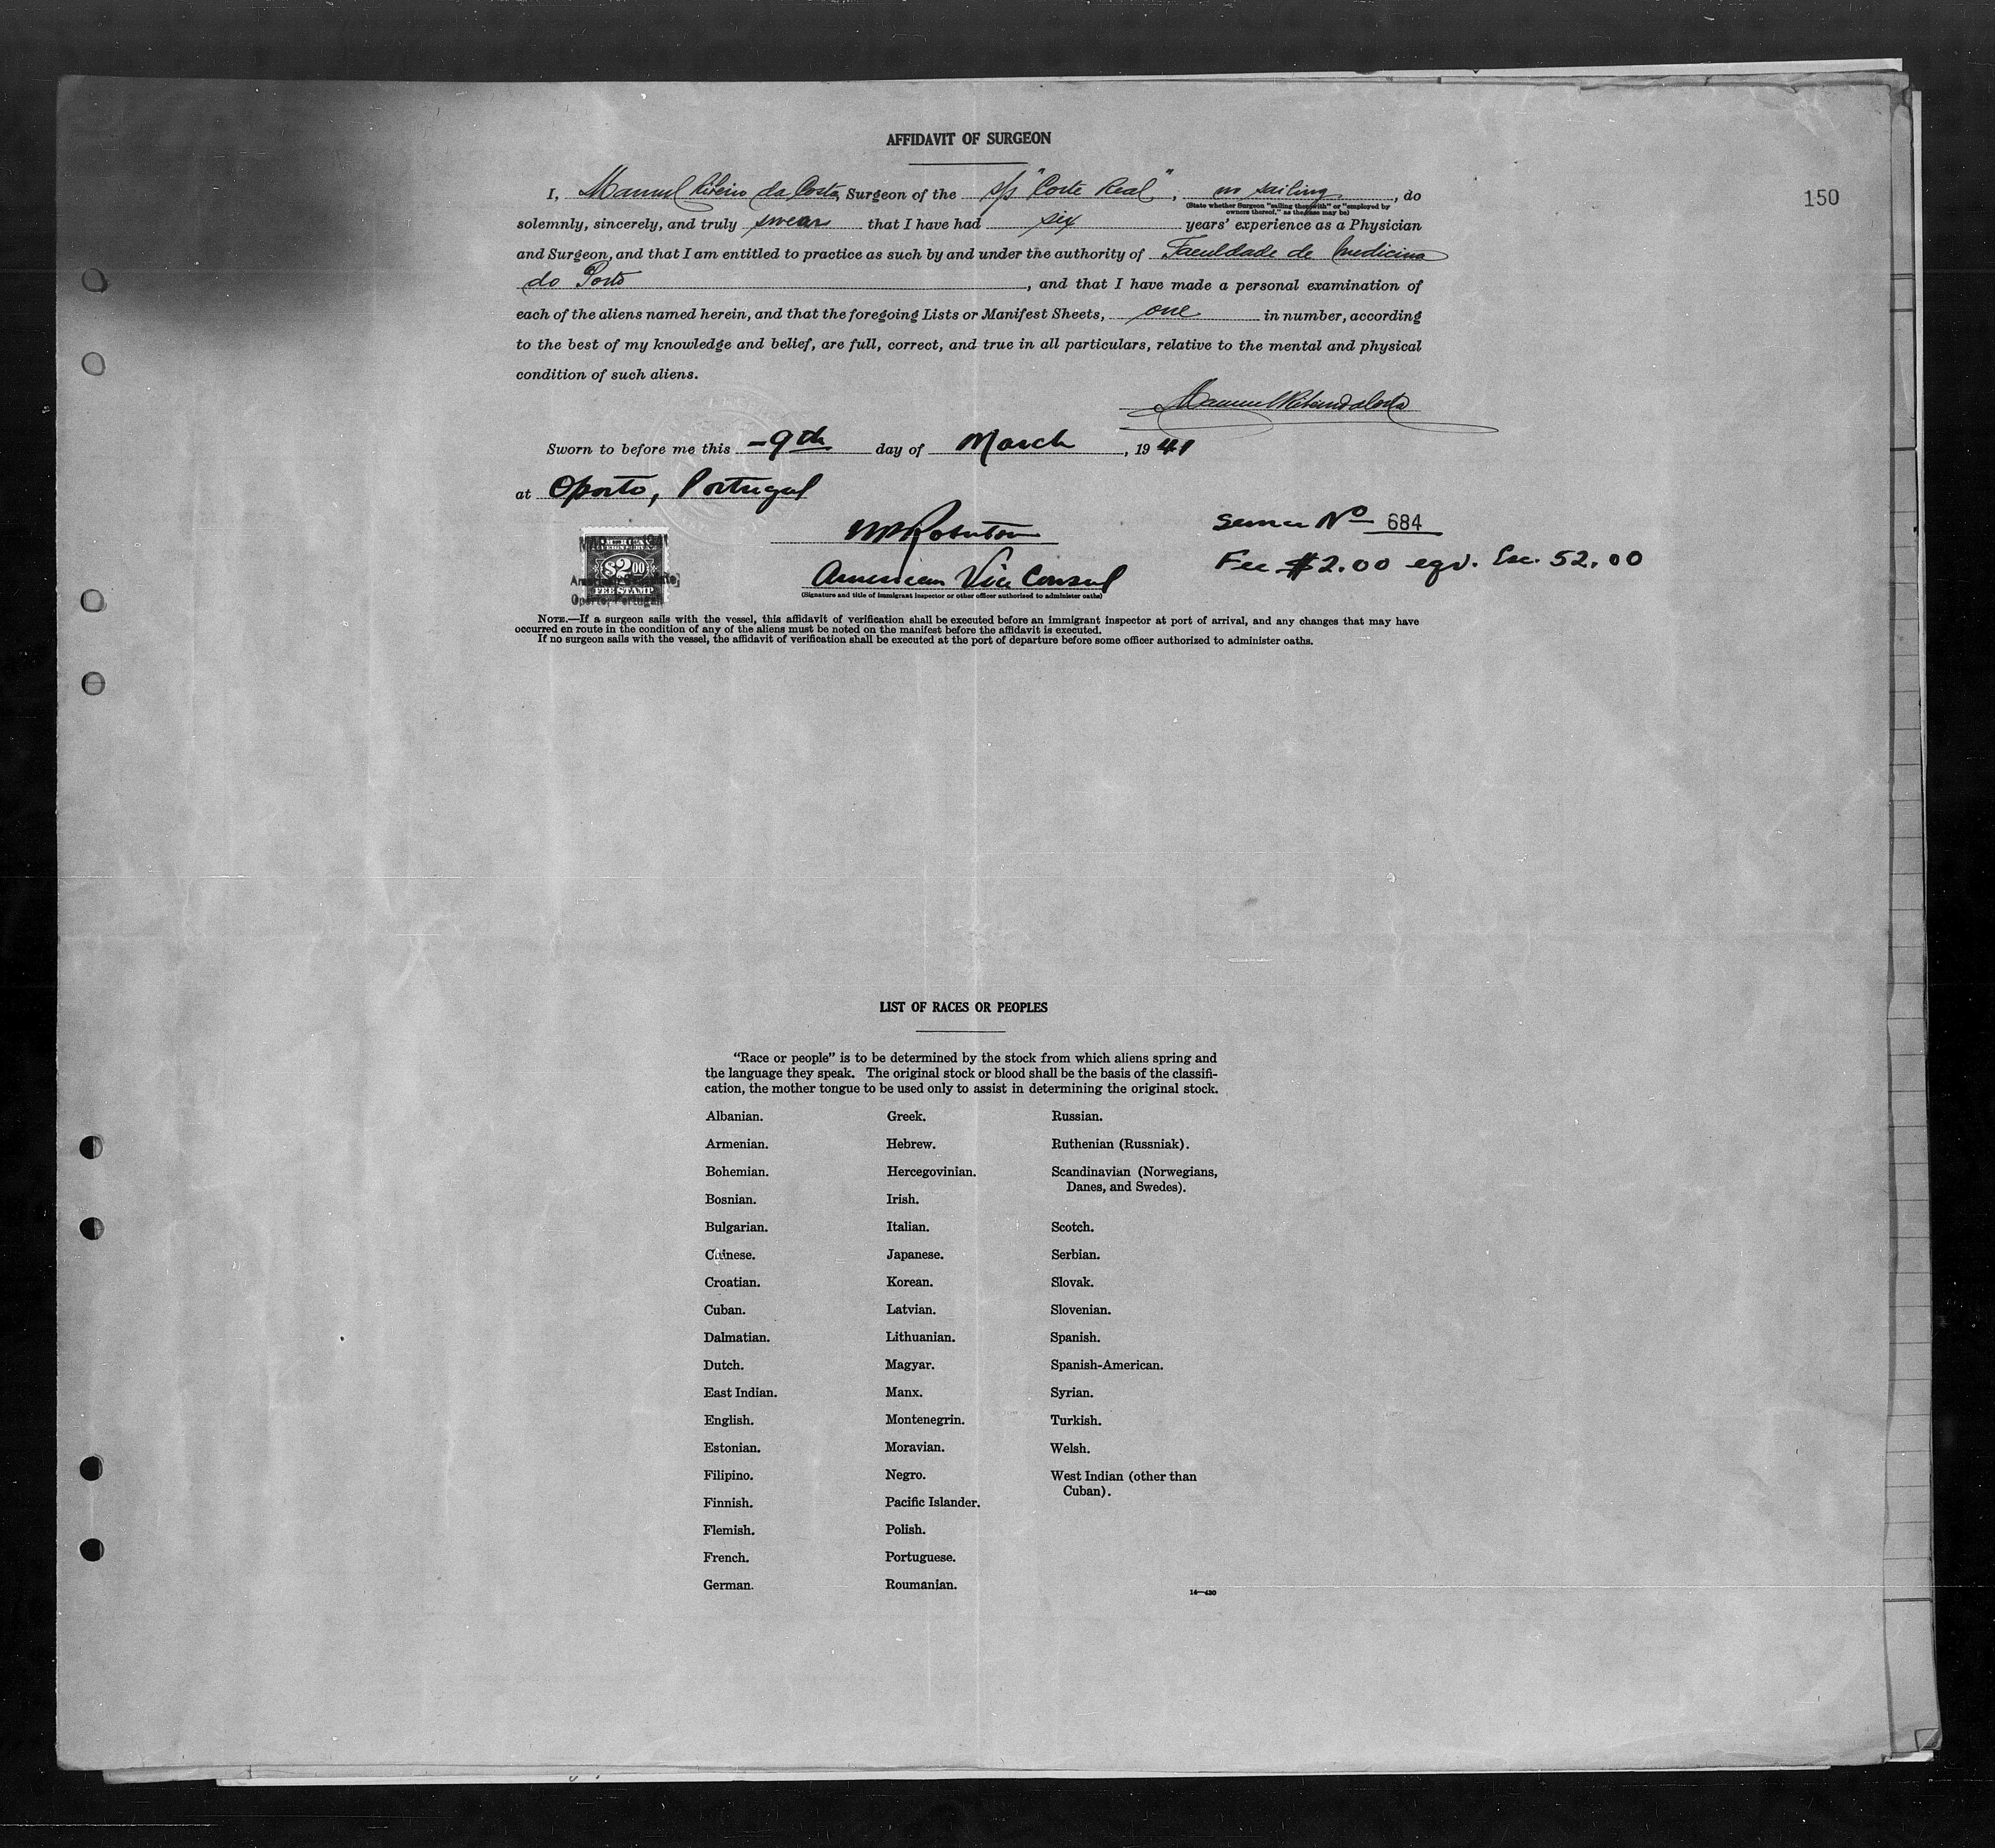 AFFIDAVIT OF SURGEON
150
I, Manuel Ribeiro da Costa, Surgeon of the s/s "Corte Real", no sailing, do
(State whether Surgeon "sailing therewith" or "employed by
owners thereof," as the case may be)
solemnly, sincerely, and truly swear that I have had six years' experience as a Physician
and Surgeon, and that I am entitled to practice as such by and under the authority of Faculdade de Medicina
do Porto, and that I have made a personal examination of
each of the aliens named herein, and that the foregoing Lists or Manifest Sheets, one in number, according
to the best of my knowledge and belief, are full, correct, and true in all particulars, relative to the mental and physical
condition of such aliens.
Manuel Ribeiro da Costa
Sworn to before me this -9th day of March, 1941
at Oporto, Portugal
Service No 684
Fee $2.00 eqv. Esc. 52.00
American Vice Consul
(Signature and title of immigrant inspector or other officer authorized to administer oaths)
AMERICAN
FOREIGN SERVICE
$2.00
FEE STAMP
Oporto, Portugal
NOTE.—If a surgeon sails with the vessel, this affidavit of verification shall be executed before an immigrant inspector at port of arrival, and any changes that may have
occurred en route in the condition of any of the aliens must be noted on the manifest before the affidavit is executed.
If no surgeon sails with the vessel, the affidavit of verification shall be executed at the port of departure before some officer authorized to administer oaths.
LIST OF RACES OR PEOPLES
"Race or people" is to be determined by the stock from which aliens spring and
the language they speak. The original stock or blood shall be the basis of the classifi-
cation, the mother tongue to be used only to assist in determining the original stock.
Albanian.
Armenian.
Bohemian.
Bosnian.
Bulgarian.
Chinese.
Croatian.
Cuban.
Dalmatian.
Dutch.
East Indian.
English.
Estonian.
Filipino.
Finnish.
Flemish.
French.
German.
Greek.
Hebrew.
Hercegovinian.
Irish.
Italian.
Japanese.
Korean.
Latvian.
Lithuanian.
Magyar.
Manx.
Montenegrin.
Moravian.
Negro.
Pacific Islander.
Polish.
Portuguese.
Roumanian.
Russian.
Ruthenian (Russniak).
Scandinavian (Norwegians,
Danes, and Swedes).
Scotch.
Serbian.
Slovak.
Slovenian.
Spanish.
Spanish-American.
Syrian.
Turkish.
Welsh.
West Indian (other than
Cuban).
14—430